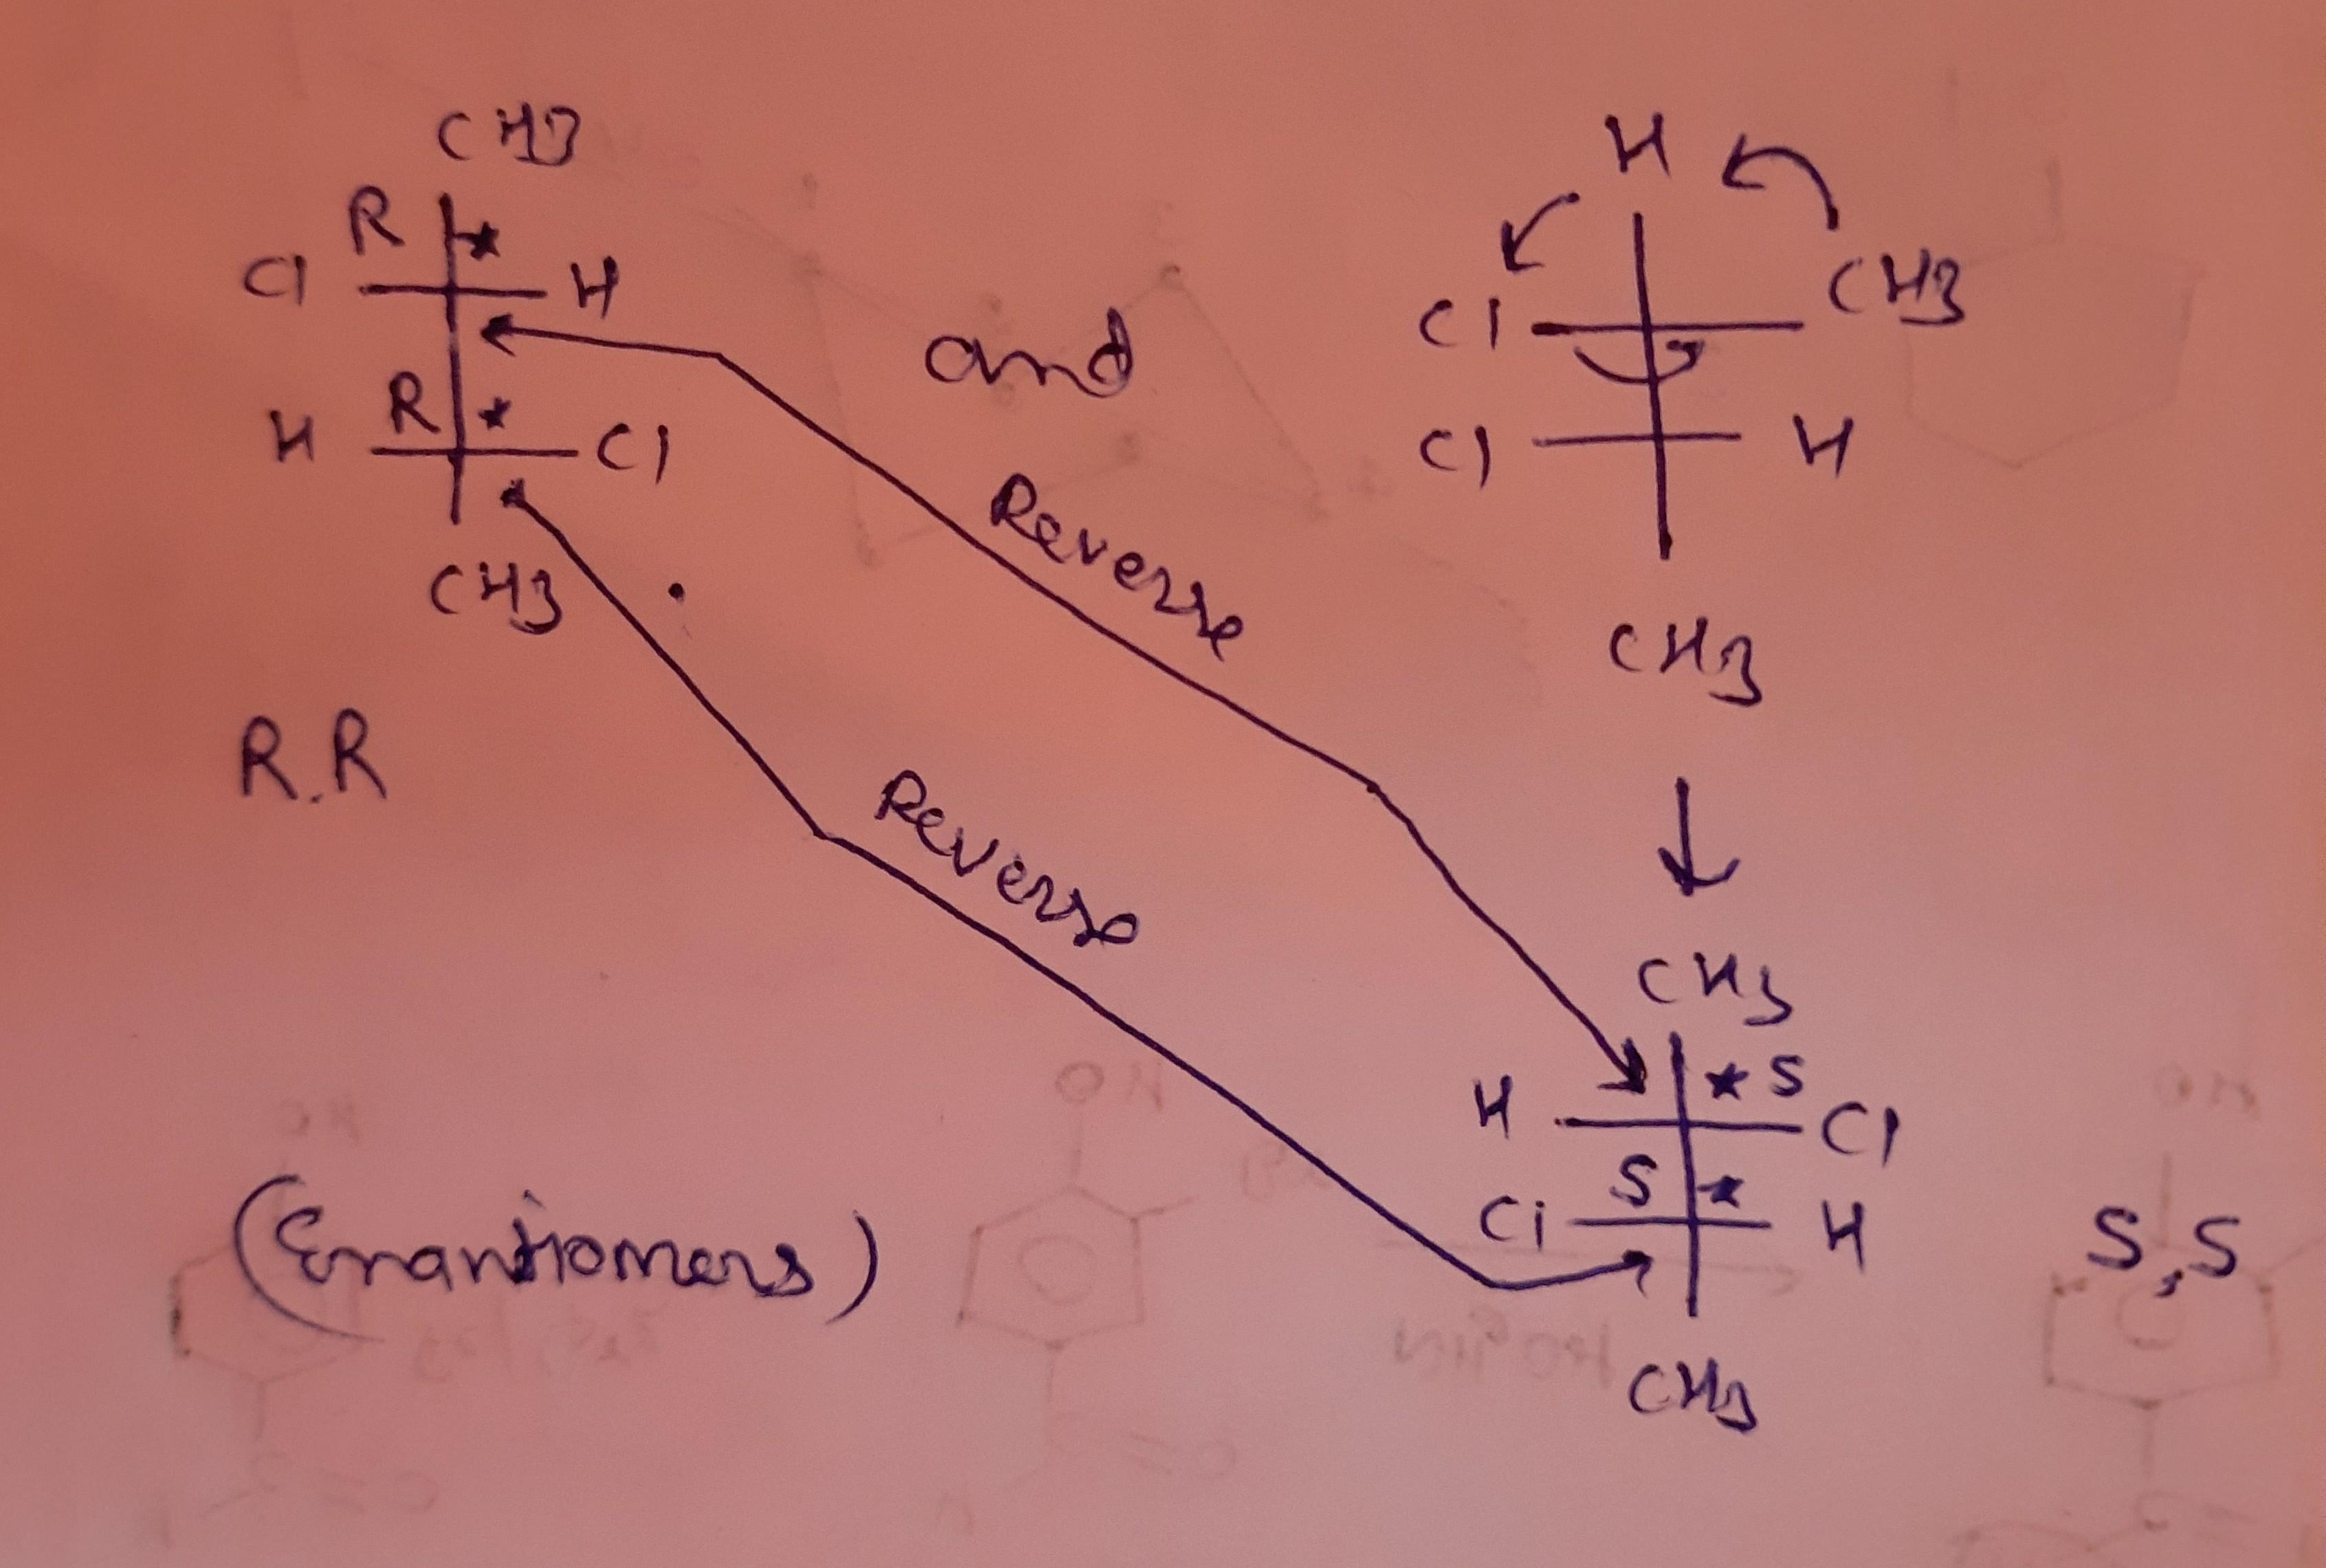 CH3
R
Cl H
R
H Cl
CH3
R.R
(Enantiomers)
and
Reverse
Reverse
H
Cl CH3
Cl H
CH3
CH3
S
H Cl
S
Cl H
CH3
S,S